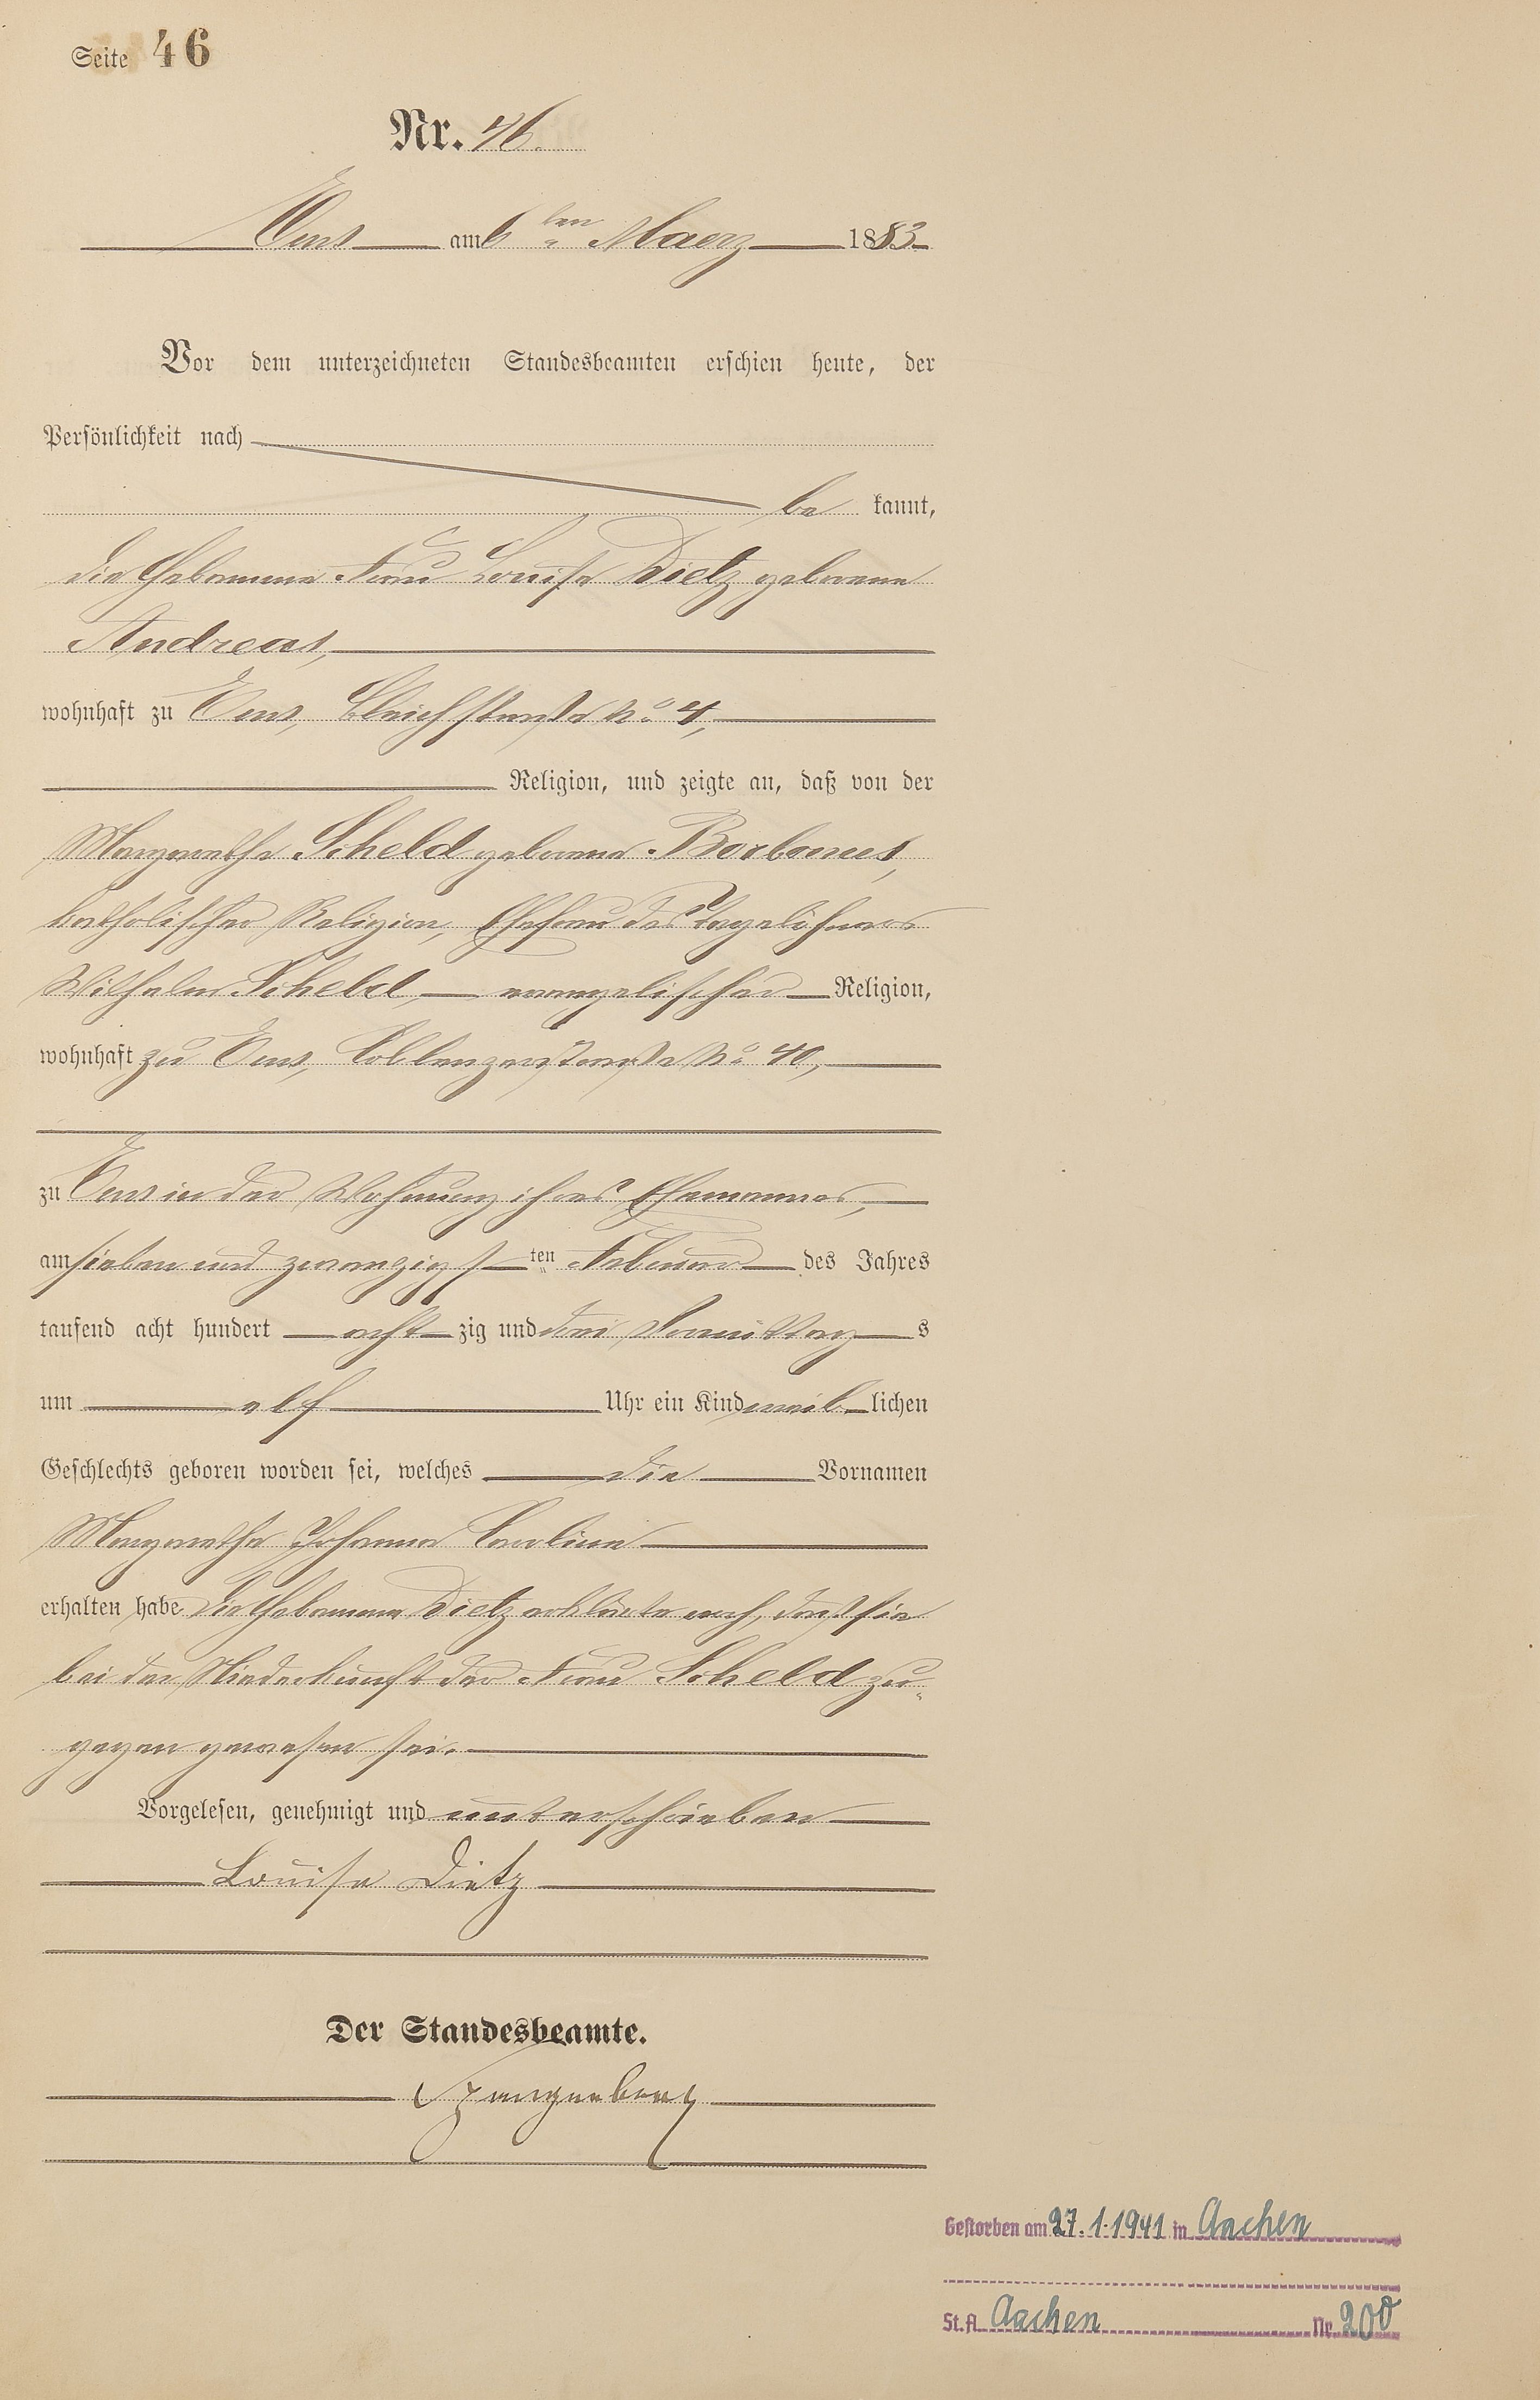 Seite 46
Nr. 46.
Ems am 6ten Maerz 1883
Vor dem unterzeichneten Standesbeamten erschien heute, der
Persönlichkeit nach
be kannt,
die Hebamme Frau Louise Dietz geborene
Andreas,
wohnhaft zu Ems, Bleichstraße No 4,
Religion, und zeigte an, daß von der
Margarethe Scheld geborene Borbonus,
katholischer Religion, Ehefrau des Tagelöhners
Wilhelm Scheld, evangelischer Religion,
wohnhaft zu Ems, Coblenzerstraße No 40,
zu Ems in der Wohnung ihres Ehemannes,
am sieben und zwanzigsten Februar des Jahres
tausend acht hundert acht zig und drei Vormittags
um elf Uhr ein Kind weiblichen
Geschlechts geboren worden sei, welches die Vornamen
Margarethe Johanna Caroline
erhalten habe. Die Hebamme Dietz erklärte noch, daß sie
bei der Niederkunft der Frau Scheld zu-
gegen gewesen sei.
Vorgelesen, genehmigt und unterschrieben
Louise Dietz
Der Standesbeamte.
Spangenberg
Gestorben am 27.1.1941 in Aachen
St.A. Aachen Nr. 200